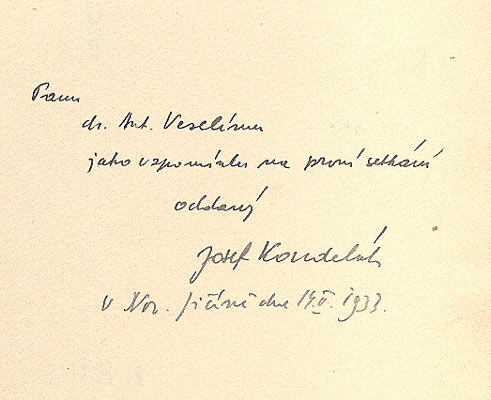 Panu
dr. Ant. Veselému
jako vzpomínku na první setkání
oddaný
Josef Koudelák
v Nov. Jičíně dne 14.II.1933.